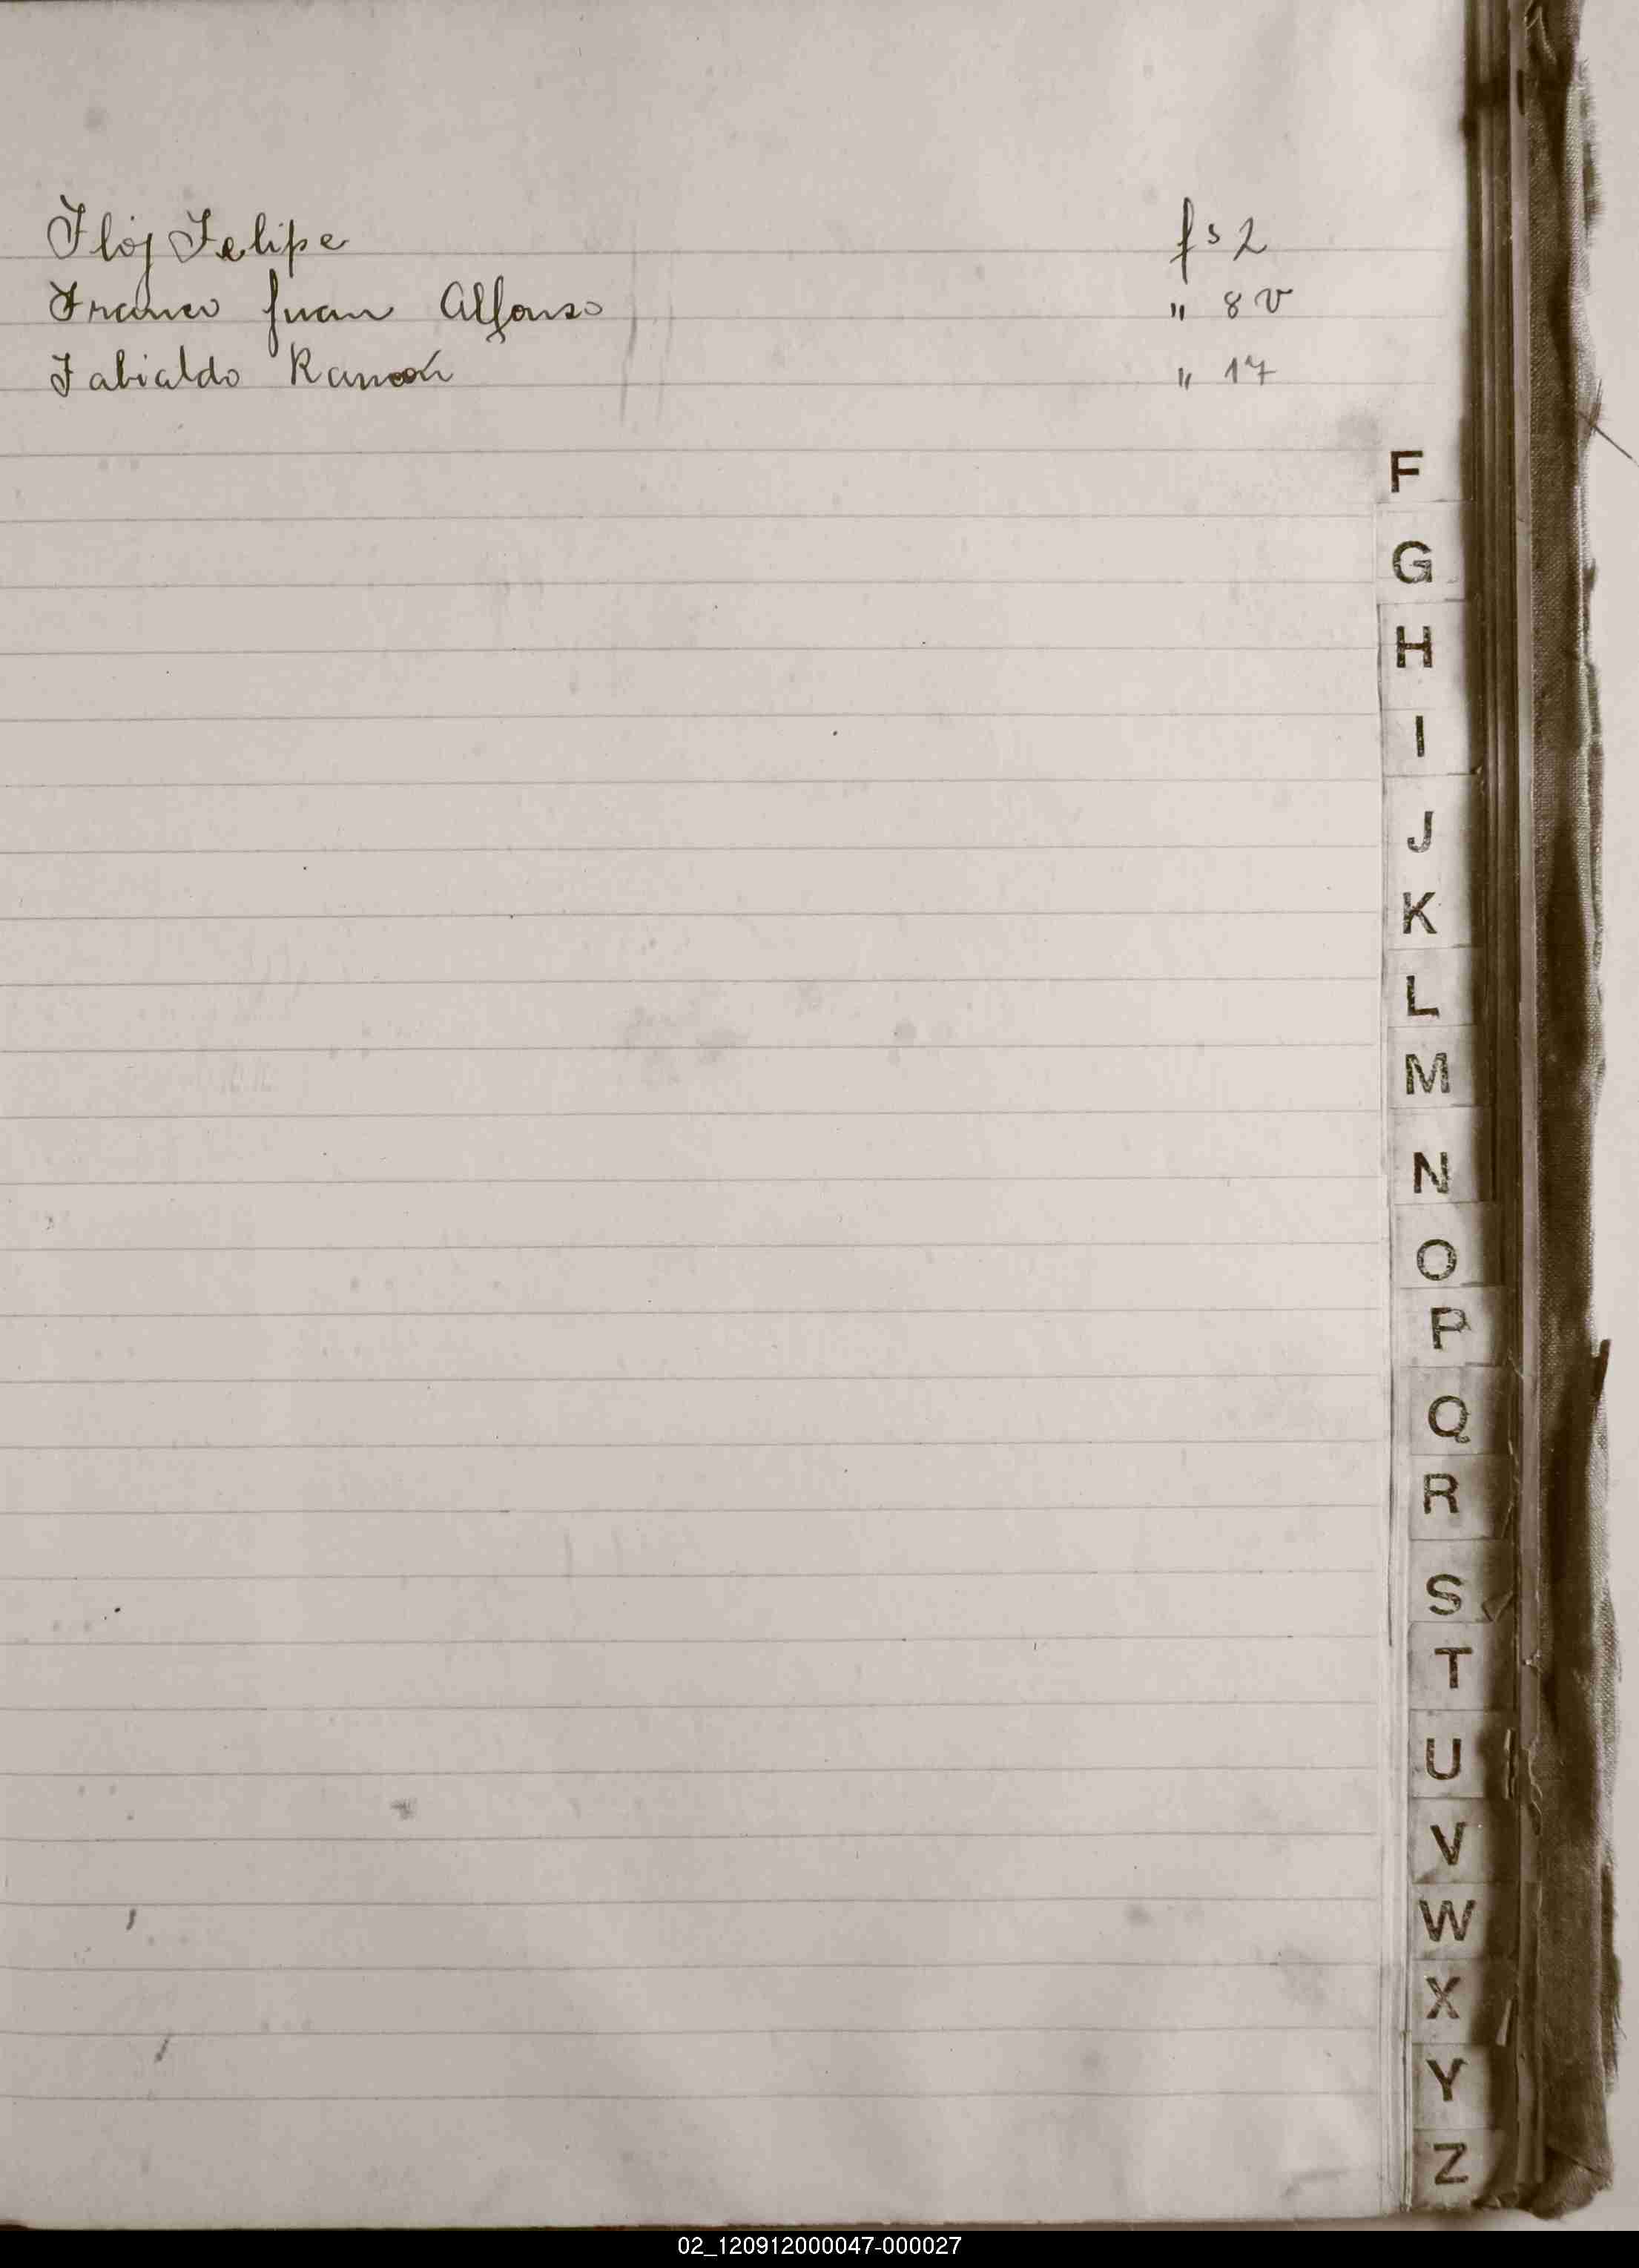 Floj Felipe fs 2
Franco Juan Alfonso " 8 v
Fabialdo Ramón " 17
F
G
H
I
J
K
L
M
N
O
P
Q
R
S
T
U
V
W
X
Y
Z
02_120912000047-000027